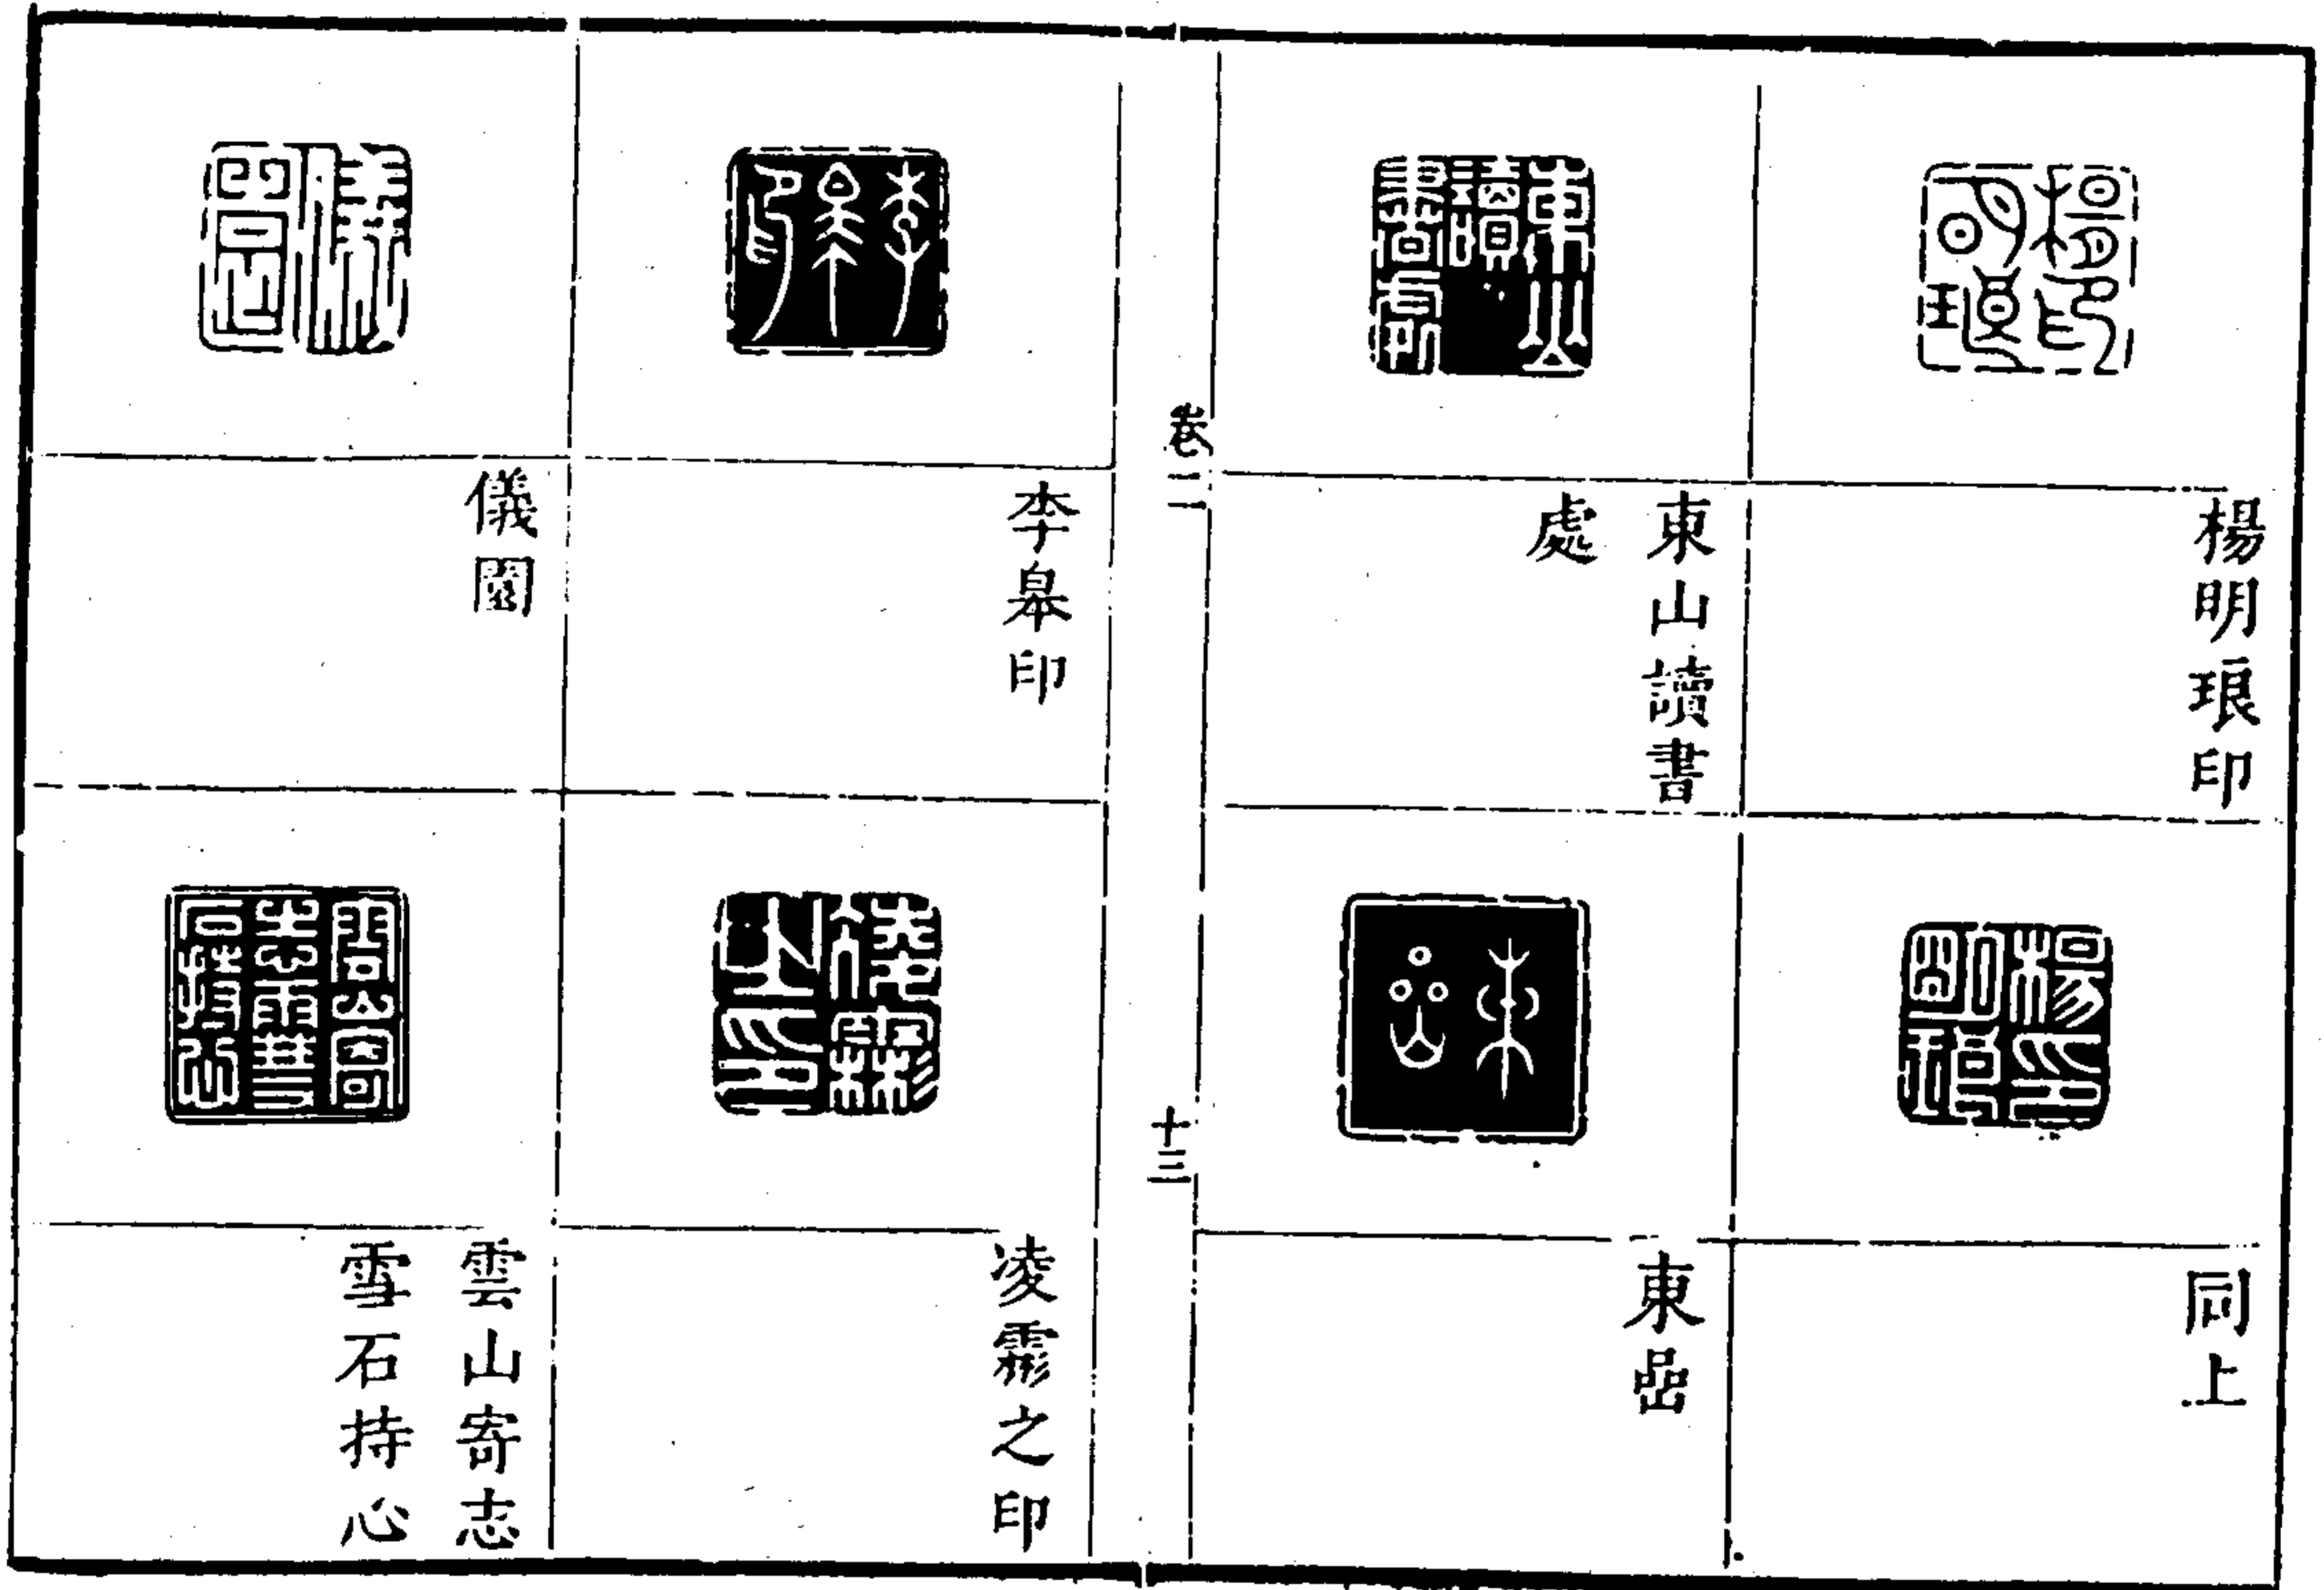 楊明琅印
同上
東山讀書
處
東嵒
卷二
十三
李皋印
凌霦之印
儀
雲山寄志
雪石持心